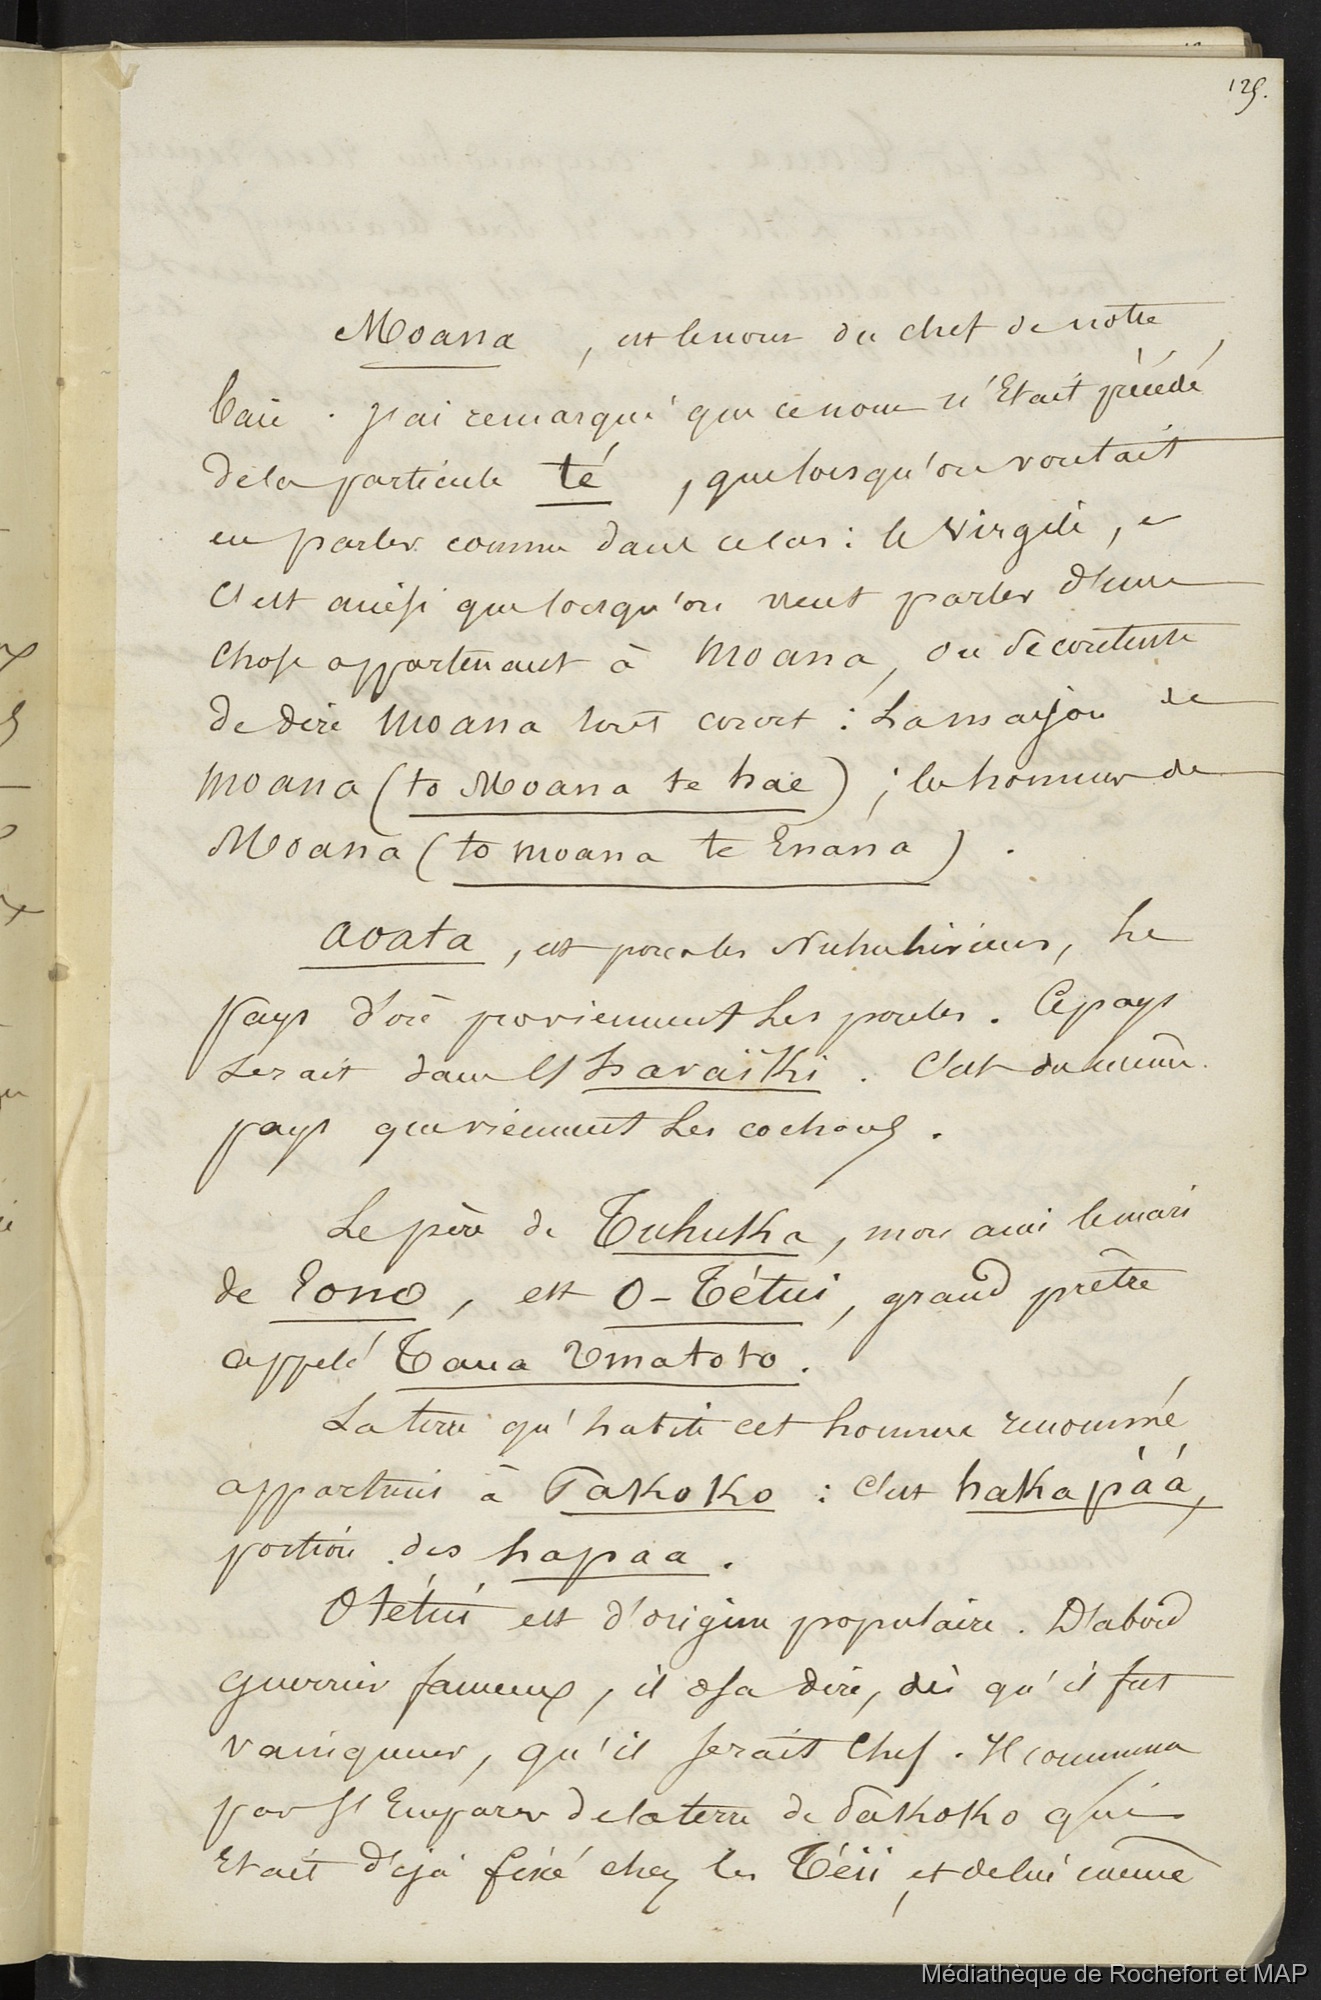 125.
Moana, est le nom du chef de notre
baie. J'ai remarqué que ce nom n'était précédé
de la particule té, que lorsqu'on voulait
en parler comme dans ce cas : le Virgile,
C'est ainsi que lorsqu'on veut parler d'une
chose appartenant à Moana, on se contente
de dire Moana tout court : La maison de
Moana (to Moana te hae) ; les hommes de
Moana (to moana te Enana).
aoata, est pour les Nukuhiviens, le
pays d'où proviennent les poules. Ce pays
serait dans l'havaïki. C'est du même
pays que viennent les cochons.
Le père de Tuhuka, mon ami le mari
de Eono, est O-Tétui, grand prêtre
appelé Taua Vmatoto.
La terre qu'habite cet homme renommé
appartenais à Takoko : c'est hakapàá,
portion des hapaa.
Otétui est d'origine populaire. D'abord
guerrier fameux, il osa dire, dès qu'il fut
vainqueur, qu'il serait Chef. Il commença
par s'Emparer de la terre de Takoko qui
Etait déjà fixé chez les Téii, et de lui même
Médiathèque de Rochefort et MAP